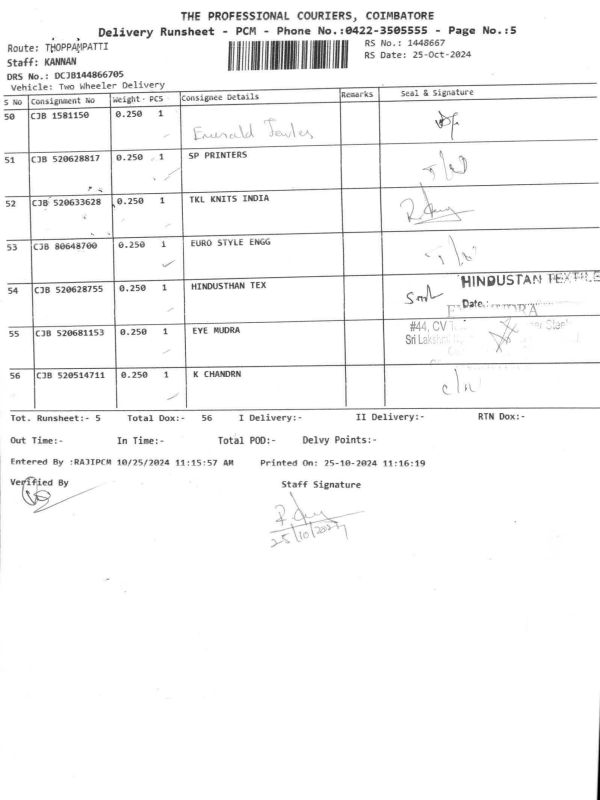 THE PROFESSIONAL COURIERS, COIMBATORE
Delivery Runsheet - PCM - Phone No.:0422-3505555 - Page No.:5
Route: THOPPAMPATTI
RS No.: 1448667
Staff: KANNAN
RS Date: 25-Oct-2024
DRS No.: DCJB144866705
Vehicle: Two Wheeler Delivery
S No Consignment No Weight PCS Consignee Details Remarks Seal & Signature
50 CJB 1581150 0.250 1 Emerald
51 CJB 520628817 0.250 1 SP PRINTERS
52 CJB 520633628 0.250 1 TKL KNITS INDIA
53 CJB 80648700 0.250 1 EURO STYLE ENGG
HINDUSTAN TEXTILE
54 CJB 520628755 0.250 1 HINDUSTHAN TEX
Date.:
#44, CV
55 CJB 520681153 0.250 1 EYE MUDRA
Sri
56 CJB 520514711 0.250 1 K CHANDRN
Tot. Runsheet:- 5 Total Dox:- 56 I Delivery:- II Delivery:- RTN Dox:-
Out Time:- In Time:- Total POD:- Delvy Points:-
Entered By :RAJIPCM 10/25/2024 11:15:57 AM Printed On: 25-10-2024 11:16:19
Verified By Staff Signature
25/10/2024